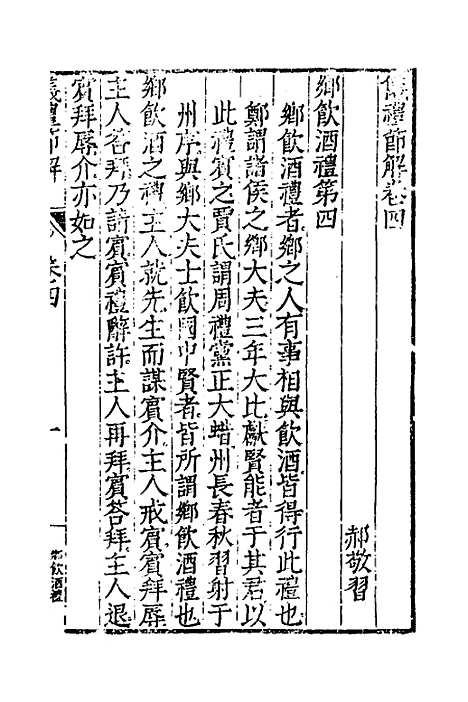 儀禮節解卷四
郝敬習
鄉飲酒禮第四
鄉飲酒禮者鄉之人有事相與飲酒皆得行此禮也
鄭謂諸侯之鄉大夫三年大比獻賢能者于其君以
此禮賓之賈氏謂周禮黨正大蜡州長春秋習射于
州序與鄉大夫士飲國中賢者皆所謂鄉飲酒禮也
鄉飲酒之禮主人就先生而謀賓介主人戒賓賓拜辱
主人荅拜乃請賓賓禮辭許主人再拜賓荅拜主人退
賓拜辱介亦如之
儀禮節解 卷四 一 鄉飲酒禮